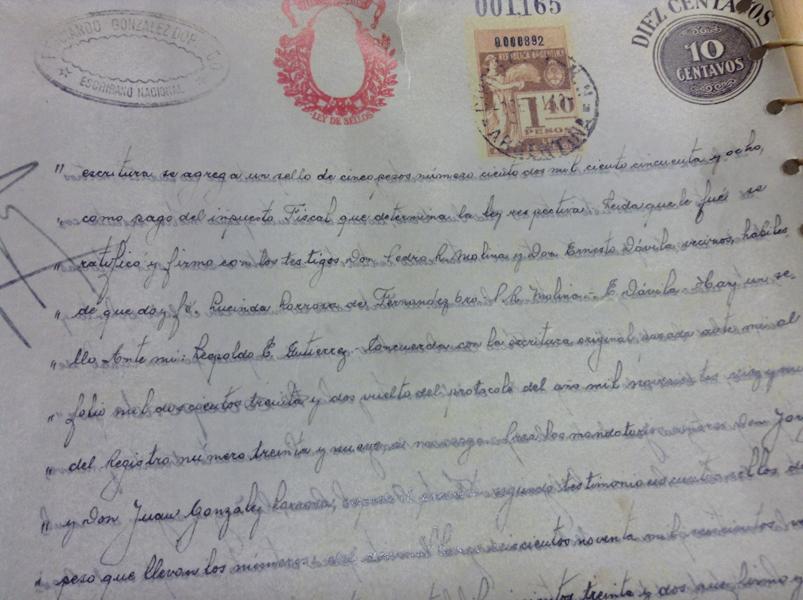 001165
DIEZ CENTAVOS
10
CENTAVOS
GONZALEZ
ESCRIBANO NACIONAL
LEY DE SELLOS
0000892
1
PESO
ARGENTINA
" escritura se agrega un sello de cinco pesos número ciento dos mil ciento cincuenta y ocho,
" como pago del impuesto Fiscal que determina la ley respectiva. Leida que le fué se
" ratificó y firmó con los testigos Don Pedro R. Molina y Don Ernesto Dávila vecinos, hábiles
" de que doy fé. Lucinda Larrosa de Fernández P. R. Molina - E. Dávila - Hay un se-
" llo Ante mi: Leopoldo E. Gutierrez - Concuerda con la escritura original ante mi al
" folio mil doscientos treinta y dos vuelta del protocolo del año mil novecientos
" del Registro número treinta y nueve de Para los mandatarios señores Don
" y Don Juan González Larrosa, segundo testimonio en cuatro sellos de
" peso que llevan los números: del seiscientos noventa mil
treinta y dos que firmo y